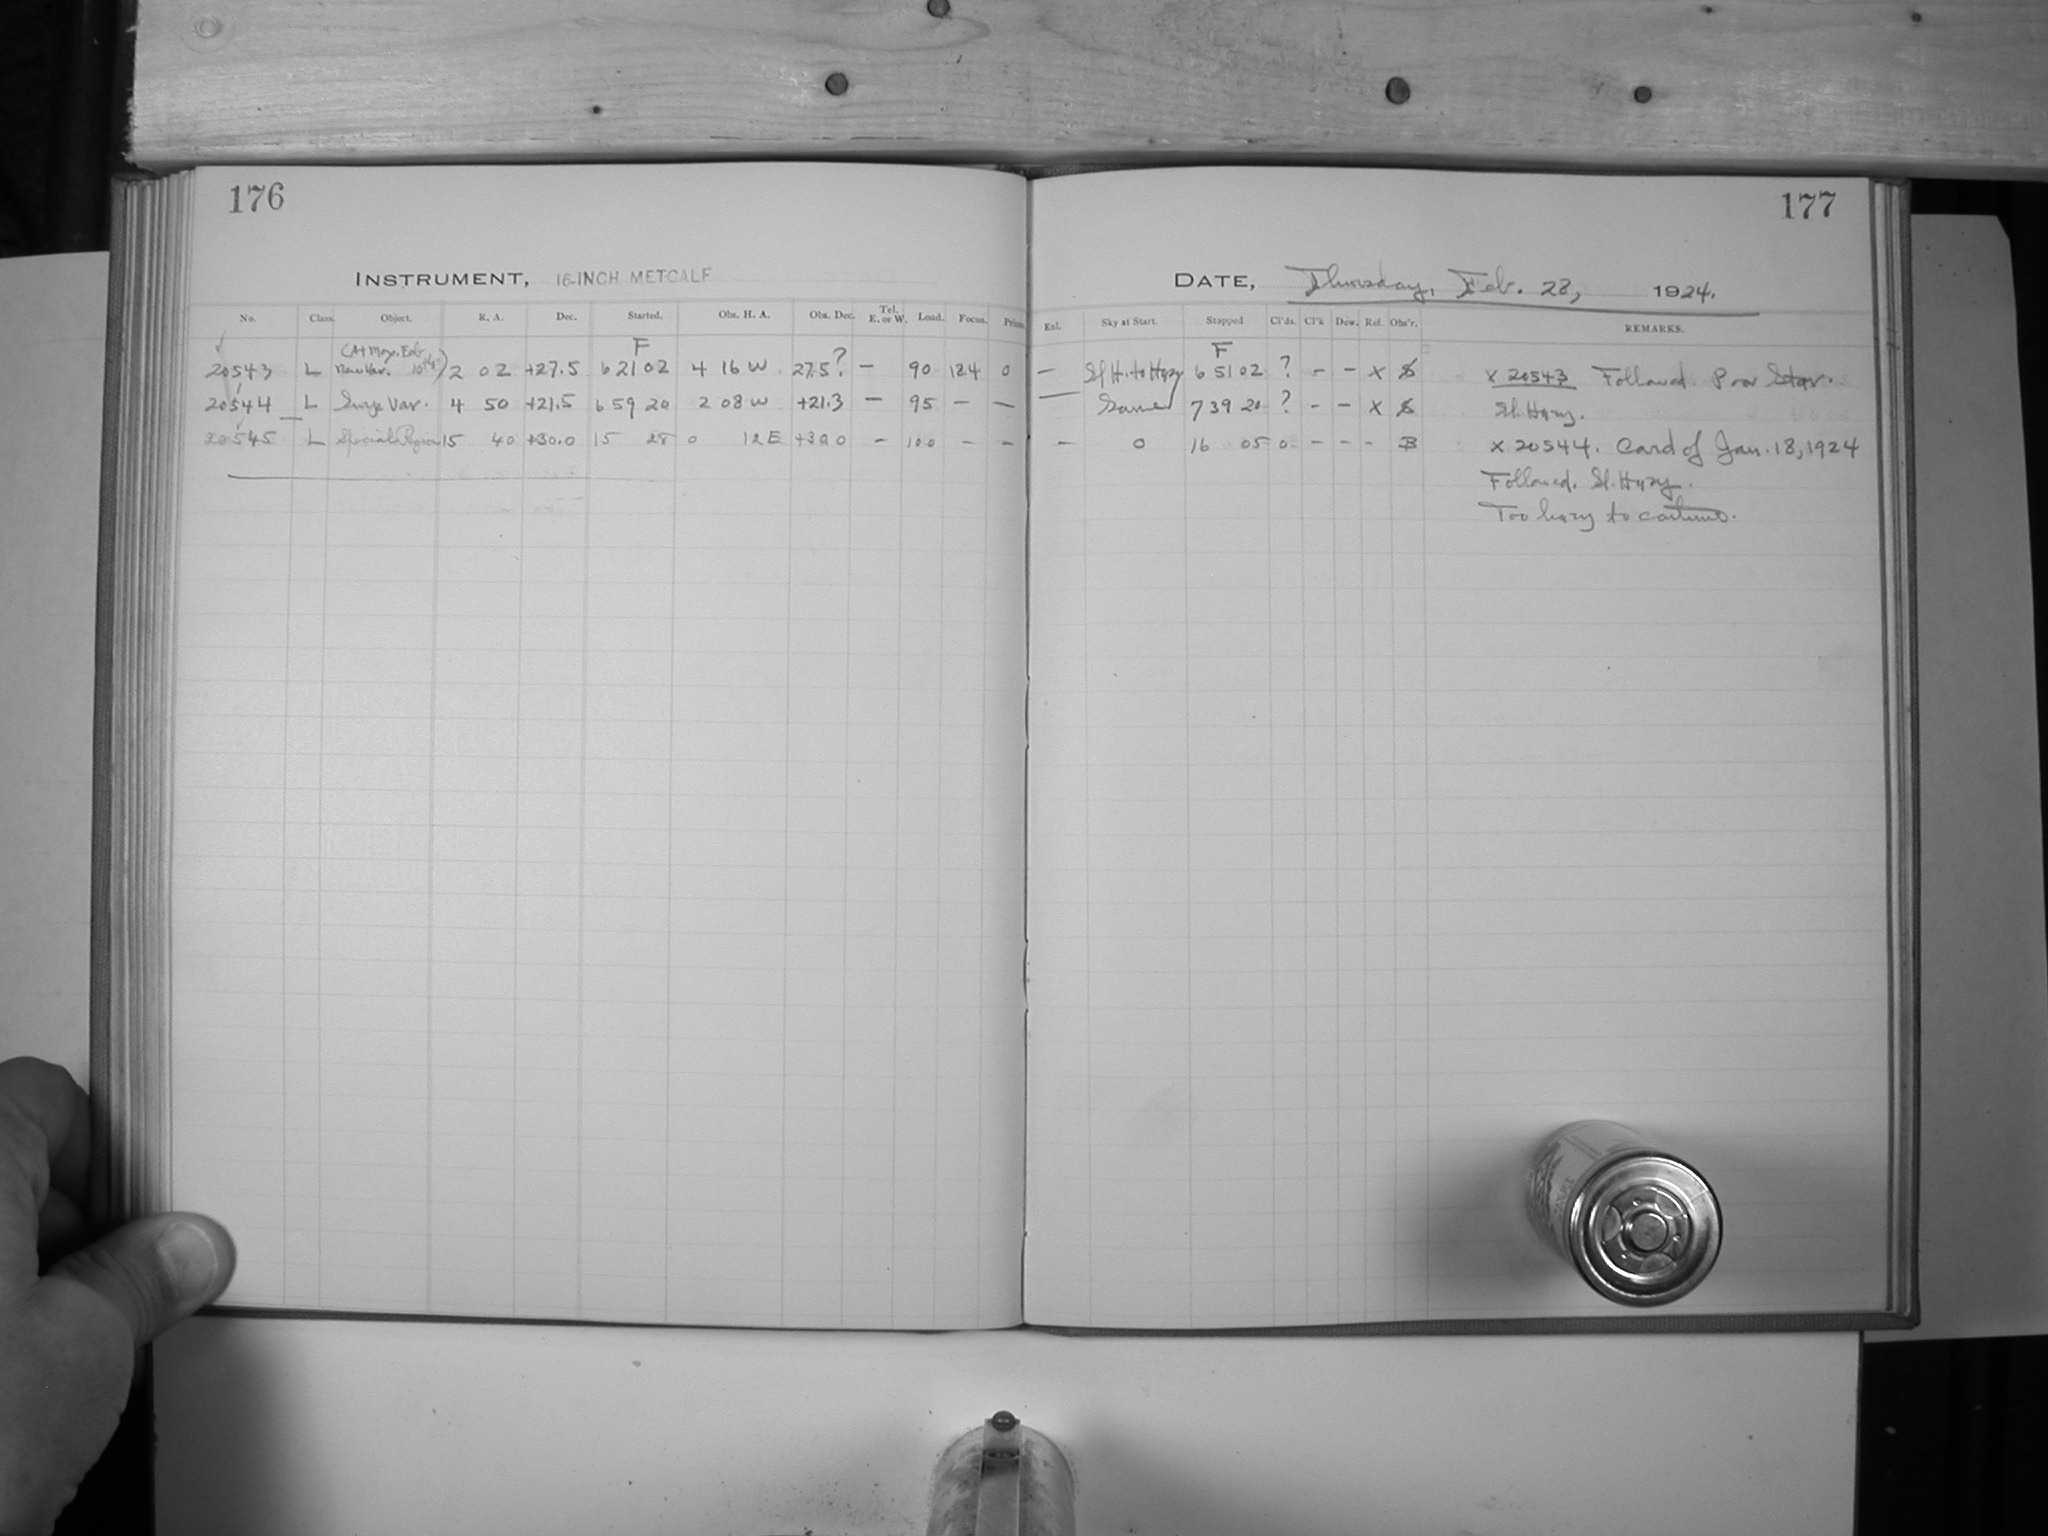 176
INSTRUMENT, 16-INCH METCALF
No. Class. Object. R. A. Dec. Started. Obs. H. A. Obs. Dec. Tel. E. or W. Load. Focus. Prism.
F
20543 L New Var. 2 02 +27.5 6 21 02 4 16 W 27.5? – 90 12.4 0
20544 L Var. 4 50 +21.5 6 59 20 2 08 W +21.3 – 95 – –
20545 L Special Region 15 40 +30.0 15 28 0 12 E +30.0 – 100 – –
177
DATE, Thursday, Feb. 28, 1924.
Exl. Sky at Start. Stopped Cl'ds. Cl'k Dew. Ref. Obs'r. REMARKS.
F
– Sl H. to Hazy 6 51 02 ? – – X x 20543 Followed. Poor Star.
Same 7 39 20 ? – – X Sl. Hazy.
– 0 16 05 0 – – – B x 20544. Card of Jan. 18, 1924
Followed. Sl. Hazy.
Too hazy to continue.